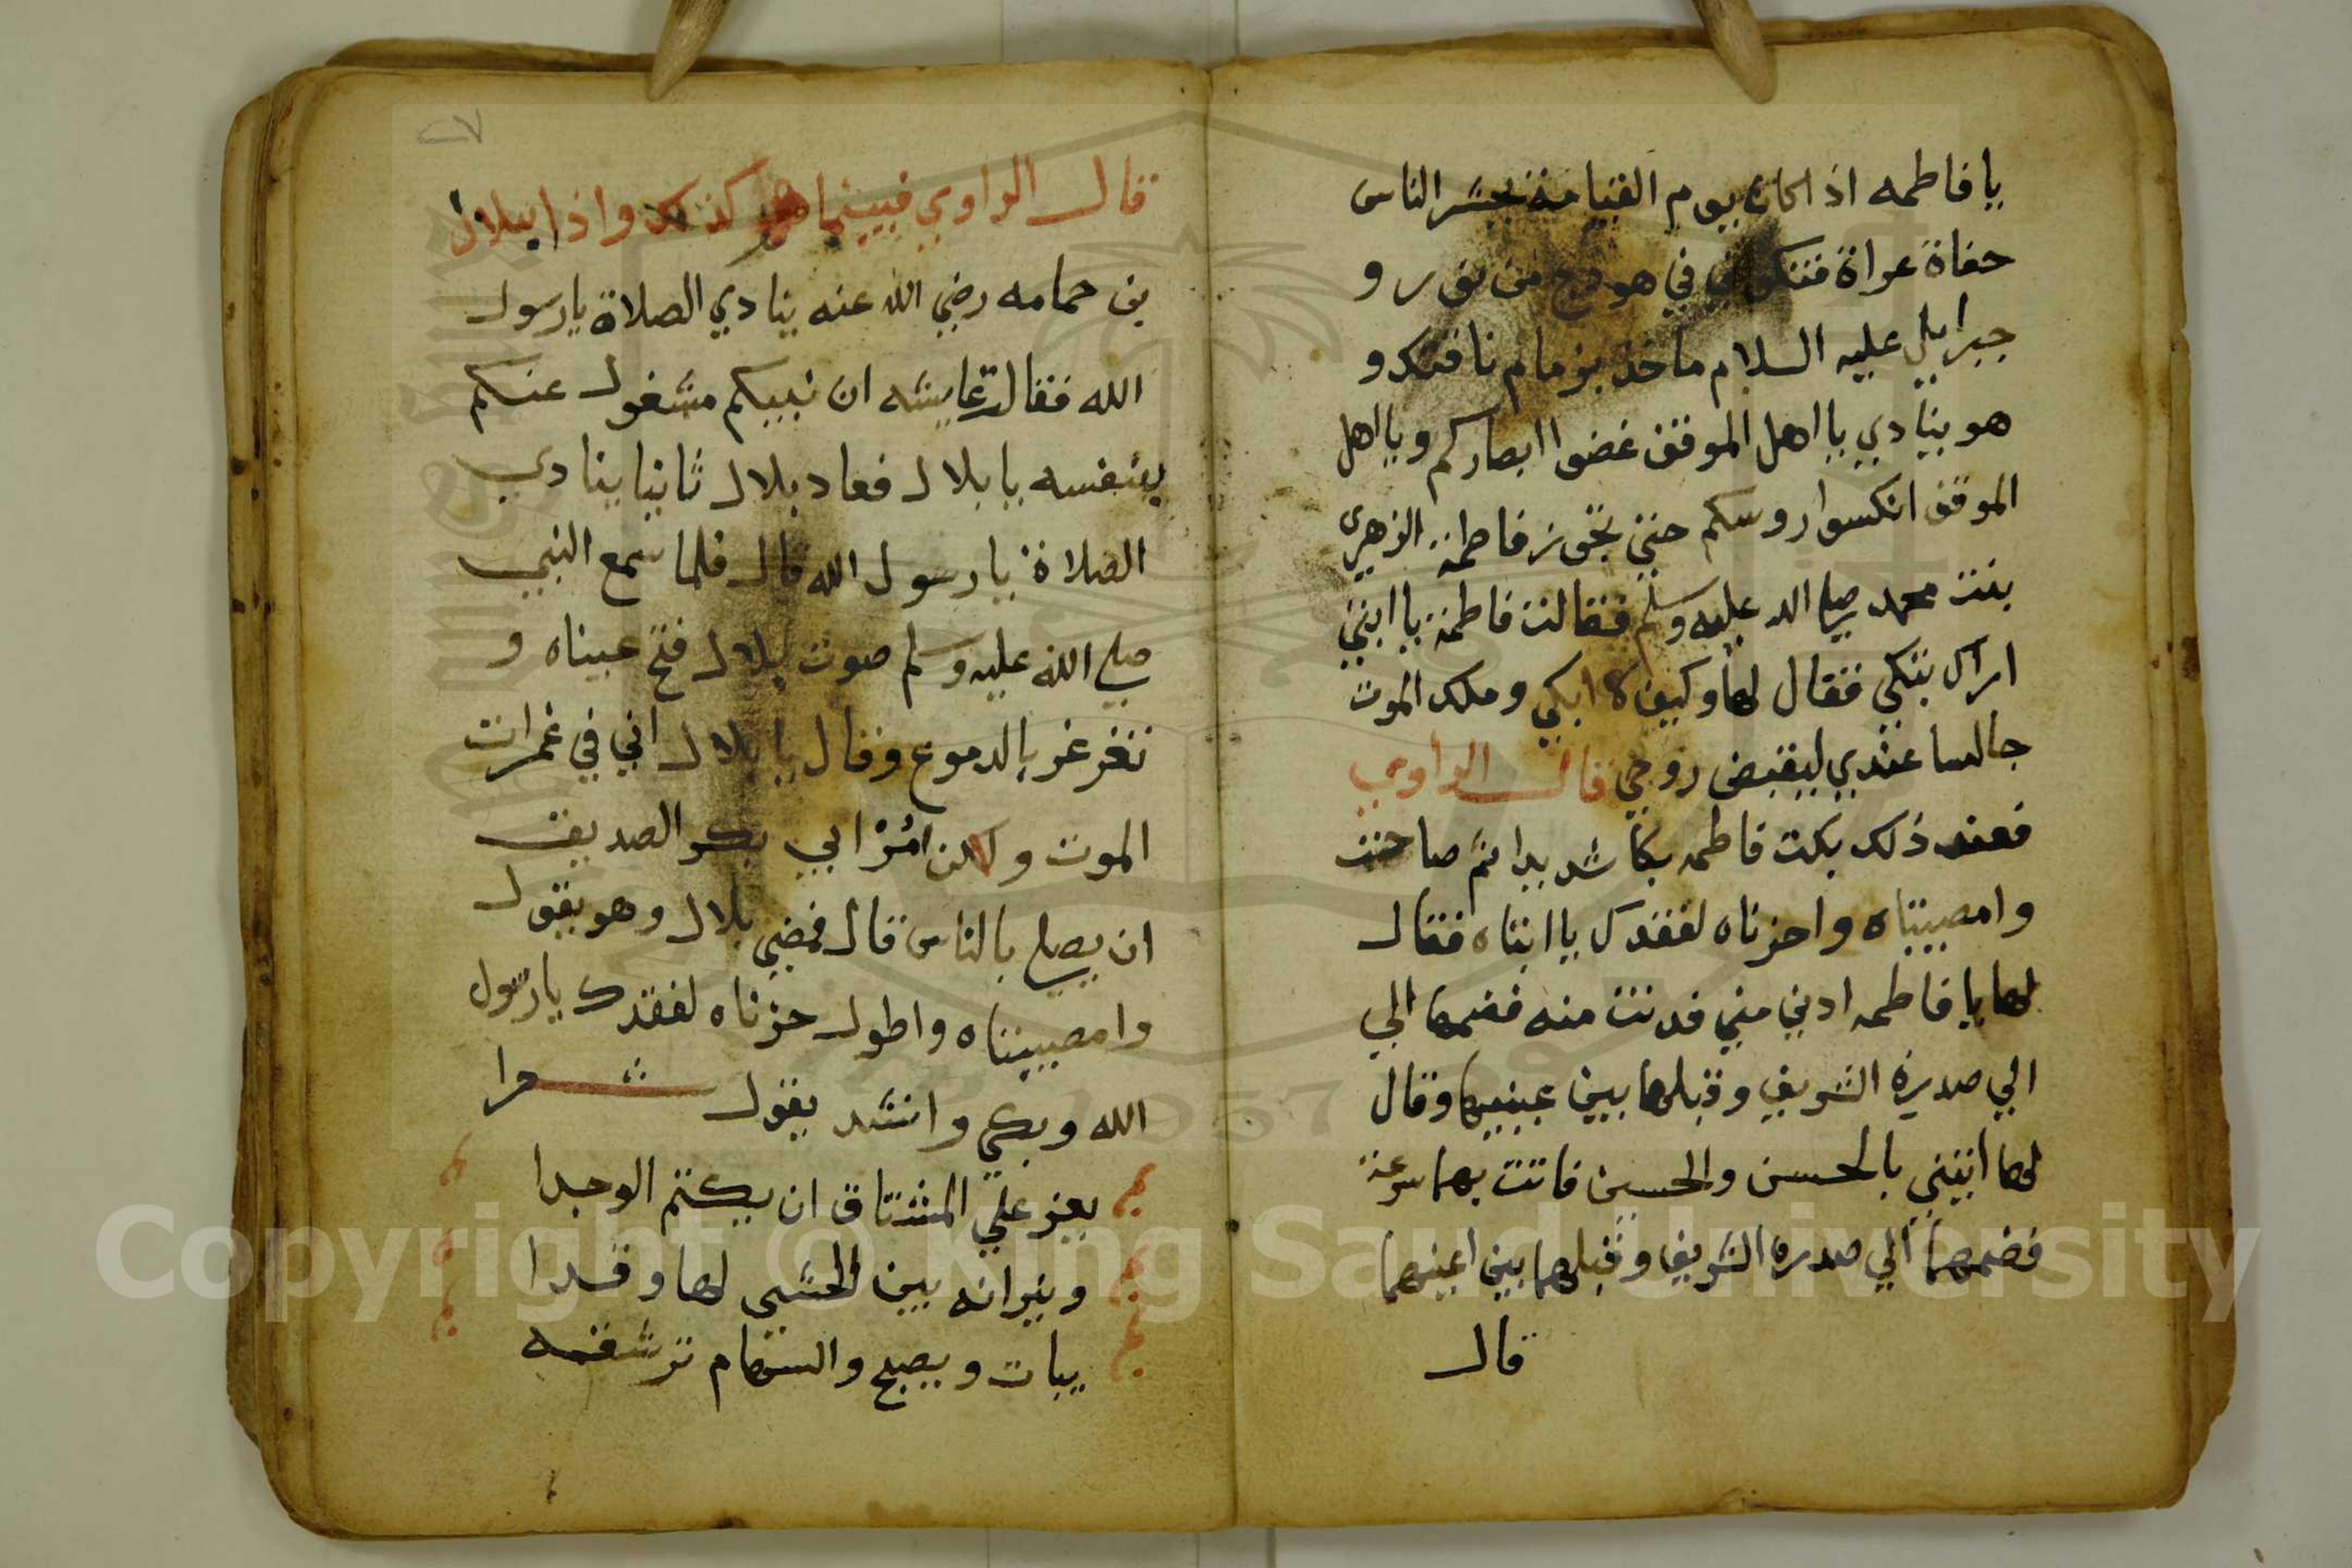 يا فاطمه اذا كان يوم القيامة يحشر الناس
حفاة عراة فتكوني في هودج من نور و
جبرايل عليه السلام ماخذ بزمام ناقتك و
هو ينادي يا اهل الموقف غضوا ابصاركم ويا اهل
الموقف انكسوا روسكم حتي تجوز فاطمة الزهرى
بنت محمد صلي الله عليه وسلم فقالت فاطمة يا ابتي
اراك تبكي فقال لها وكيف لا ابكي وملك الموت
جالسا عندي ليقبض روحي قال الراوي
فعند ذلك بكت فاطمه بكا شديدا ثم صاحت
وامصيبتاه واحزناه لفقدك يا ابتاه فقال
لها يا فاطمه ادني مني فدنت منه فضمها الي
الي صدره الشريف وقبلها بين عينيها وقال
لها اتيني بالحسن والحسين فاتت بهما سرعة
فضمهما الي صدره الشريف وقبلهما بين اعينهما
قال
٢٧
قال الراوي فبينما هو كذلك واذا ببلال
بن حمامه رضي الله عنه ينادي الصلاة يا رسول
الله فقالت عايشه ان نبيكم مشغول عنكم
بنفسه يا بلال فعاد بلال ثانيا ينادي
الصلاة يا رسول الله قال فلما سمع النبي
صلي الله عليه وسلم صوت بلال فتح عيناه و
تغرغر بالدموع وقال يا بلال اني في غمرات
الموت ولكن امر ابي بكر الصديق
ان يصلي بالناس قال فمضي بلال وهو يقول
وامصيبتاه واطول حزناه لفقدك يا رسول
الله وبكي وانشد يقول شعرا
يعز علي المشتاق ان يكتم الوجدا
ونيرانه بين الحشي لها وقدا
يبات ويصبح والسهام ترشقه
Copyright © King Saud University
1957